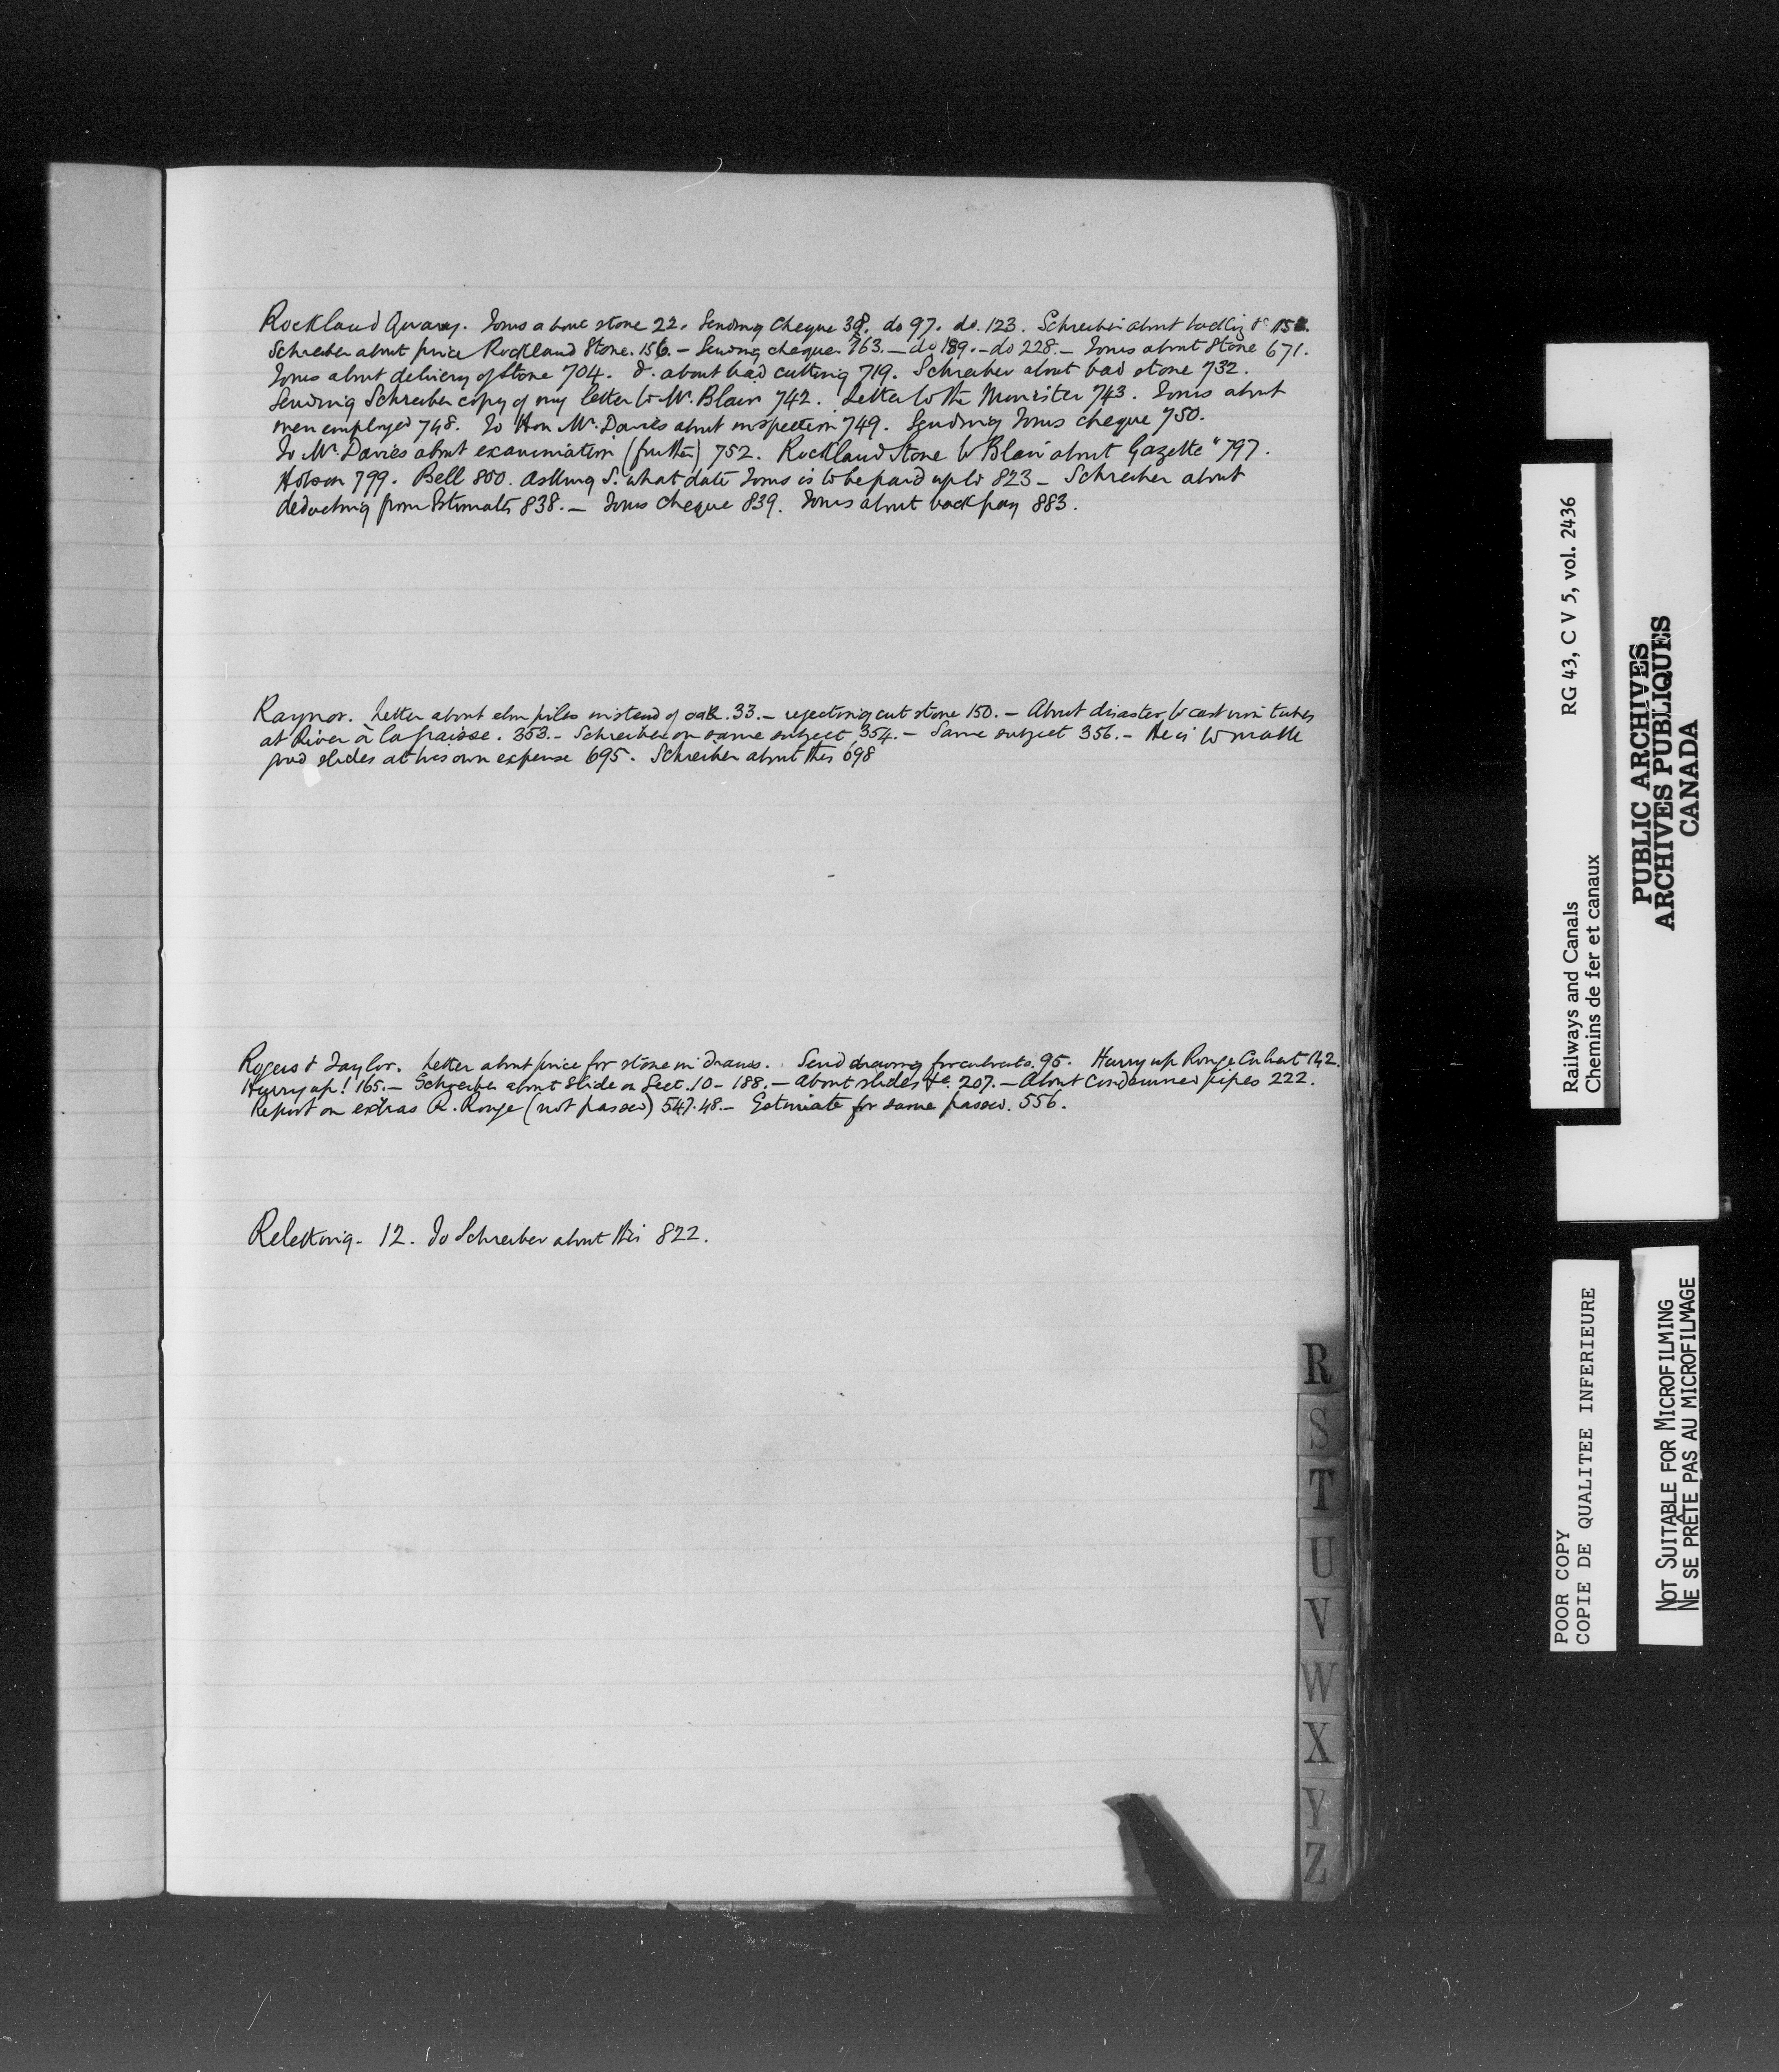 Rockland Quarry. Toms about stone 22. Sending cheque 38. do 97. do. 123. Schreiber about
Schreiber about price Rockland Stone. 156. – Sending cheque. 163. – do 189. – do 228. – Toms about Stone 671.
Toms about delivery of Stone 704. do. about bad cutting 719. Schreiber about bad stone 732.
Sending Schreiber copy of my letter to Mr. Blair 742. Letter to the Minister 743. Toms about
men employed 748. To Hon Mr. Davies about inspection 749. Sending Toms cheque 750.
To Mr. Davies about examination (further) 752. Rockland Stone to Blair about Gazette" 797.
Hobson 799. Bell 800. Asking S. what date Toms is to be paid up to 823 – Schreiber about
deducting from Estimates 838. – Toms cheque 839. Toms about back pay 883.
Raynor. Letter about elm piles instead of oak. 33. – rejecting cut stone 150. – About disaster to cast iron tubes
at River à la Graisse. 353. – Schreiber on same subject 354. – Same subject 356. – He is to make
good slides at his own expense 695. Schreiber about this 698
Rogers & Taylor. Letter about price for stone in drains. Send drawing for culverts. 95. Hurry up Rouge Culvert 142.
Hurry up! 165. – Schreiber about Slide on Sect. 10 – 188. – About slides &c. 207. – About condemned pipes 222.
Report on extras R. Rouge (not passed) 547.48. – Estimate for same passed. 556.
Reletting. 12. To Schreiber about this 822.
R
S
T
U
V
W
X
Y
Z
Railways and Canals RG 43, C V 5, vol. 2436
Chemins de fer et canaux
PUBLIC ARCHIVES
ARCHIVES PUBLIQUES
CANADA
POOR COPY
COPIE DE QUALITEE INFERIEURE
NOT SUITABLE FOR MICROFILMING
NE SE PRÊTE PAS AU MICROFILMAGE